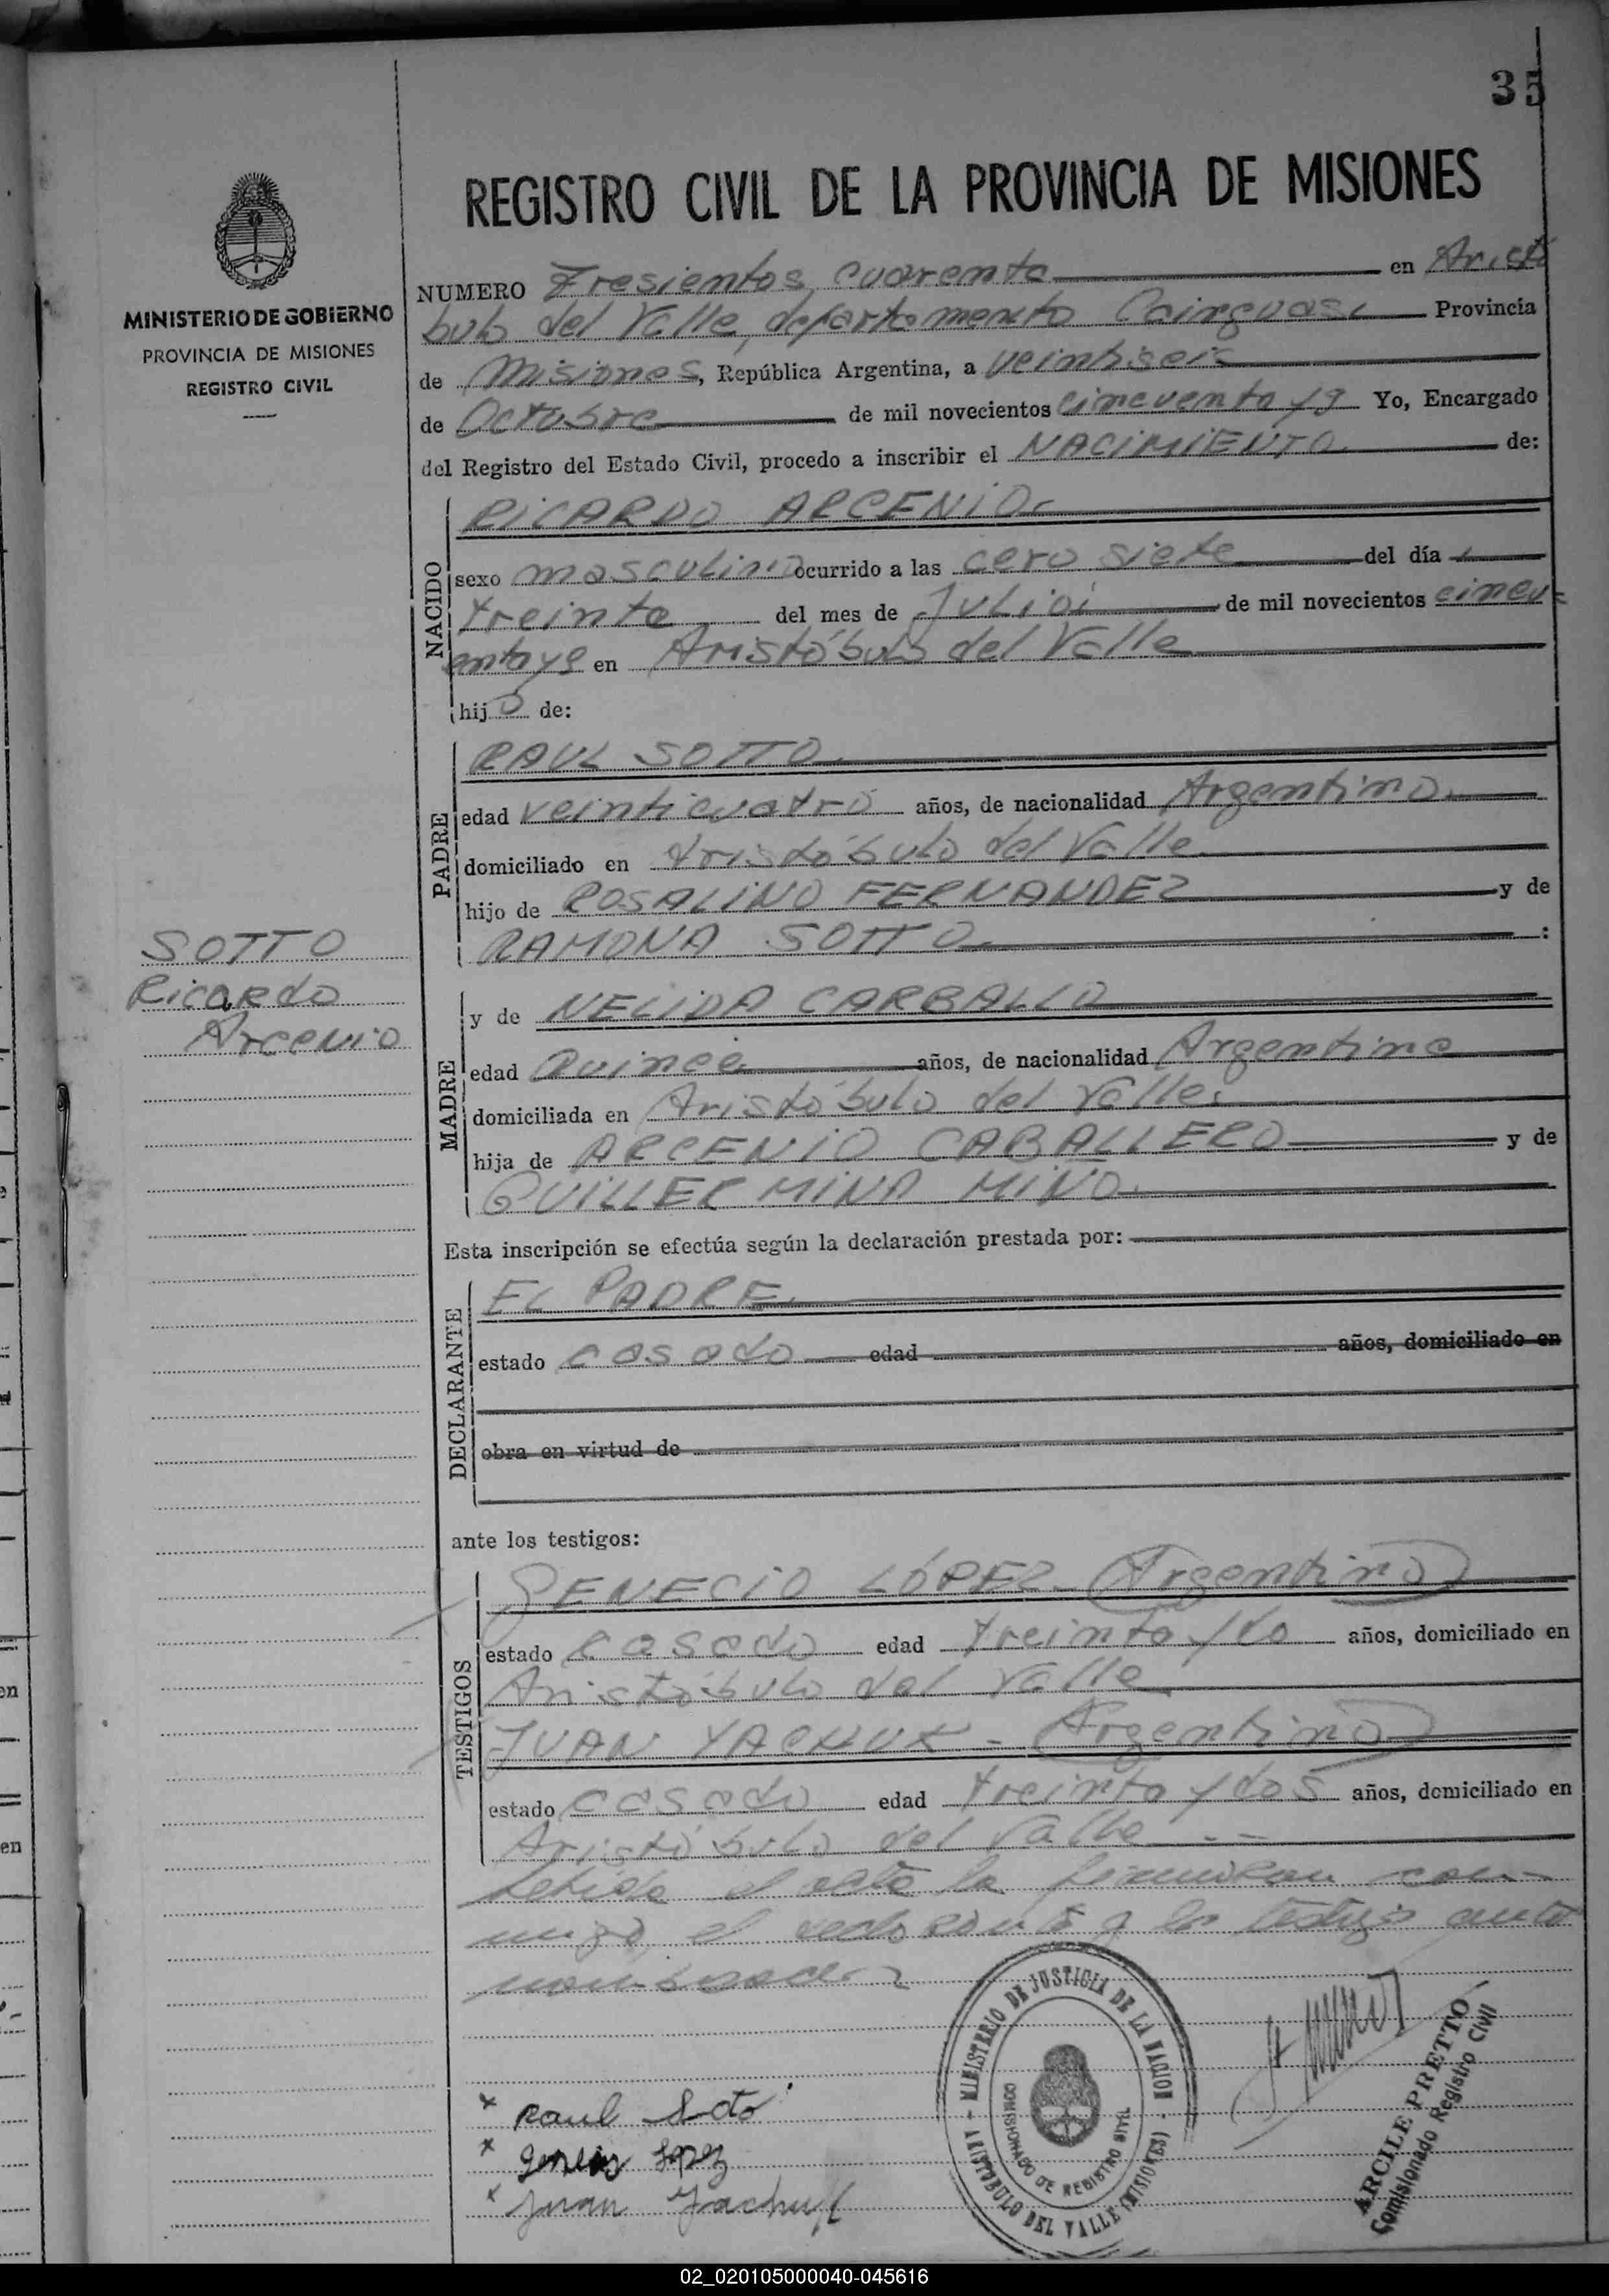 35
REGISTRO CIVIL DE LA PROVINCIA DE MISIONES
MINISTERIO DE GOBIERNO
PROVINCIA DE MISIONES
REGISTRO CIVIL
NUMERO Tresientos cuarenta en Aristó
bulo del Valle, departamento Cainguasi Provincia
de Misiones, República Argentina, a veintiseis
de Octubre de mil novecientos cincuenta y 9 Yo, Encargado
del Registro del Estado Civil, procedo a inscribir el NACIMIENTO de:
NACIDO
RICARDO ARCENIO
sexo masculino ocurrido a las cero siete del día
treinta del mes de Julio de mil novecientos cincu
enta y 9 en Aristóbulo del Valle
hijo de:
PADRE
RAUL SOTTO
edad veinticuatro años, de nacionalidad Argentino
domiciliado en Aristóbulo del Valle
hijo de ROSALINO FERNANDEZ y de
RAMONA SOTTO :
SOTTO
Ricardo
Arcenio
MADRE
y de NELIDA CARBALLO
edad Quince años, de nacionalidad Argentina
domiciliada en Aristóbulo del Valle
hija de ARCENIO CABALLERO y de
GUILLERMINA MIÑO
Esta inscripción se efectúa según la declaración prestada por:
DECLARANTE
EL PADRE
estado casado edad años, domiciliado en
obra en virtud de
ante los testigos:
TESTIGOS
SENECIO LÓPEZ - (Argentino)
estado casado edad treinta y do años, domiciliado en
Aristóbulo del Valle
JUAN YACHUK - (Argentino)
estado casado edad treinta y dos años, domiciliado en
Aristóbulo del Valle
Leida el acta la firmaron con
migo, el declarante y los testigos ante
nombrados
MINISTERIO DE JUSTICIA DE LA NACION
COMISIONADO DE REGISTRO CIVIL
ARISTOBULO DEL VALLE (MISIONES)
ARCILE PRETTO
Comisionado Registro Civil
x Raul Soto
x Lopez
x Juan Yachuk
02_020105000040-045616